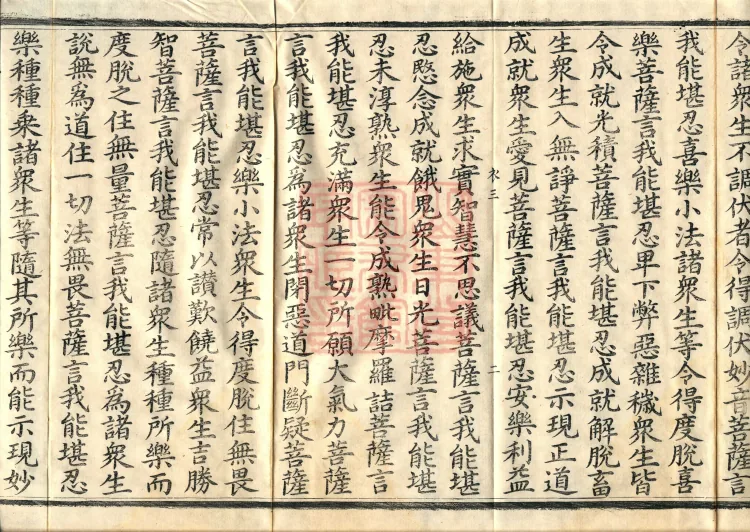 令諸衆生不調伏者令得調伏妙音菩薩言
我能堪忍喜樂小法諸衆生等令得度脫喜
樂菩薩言我能堪忍卑下弊惡雜穢衆生皆
令成就光積菩薩言我能堪忍成就解脫畜
生衆生入無諍菩薩言我能堪忍示現正道
成就衆生愛見菩薩言我能堪忍安樂利益
衣三 二
給施衆生求實智慧不思議菩薩言我能堪
忍愍念成就餓鬼衆生日光菩薩言我能堪
忍未淳熟衆生能令成熟毗摩羅詰菩薩言
我能堪忍充滿衆生一切所願大氣力菩薩
言我能堪忍爲諸衆生閉惡道門斷疑菩薩
言我能堪忍樂小法衆生令得度脫住無畏
菩薩言我能堪忍常以讃歎饒益衆生吉勝
智菩薩言我能堪忍隨諸衆生種種所樂而
度脫之住無量菩薩言我能堪忍爲諸衆生
說無爲道住一切法無畏菩薩言我能堪忍
樂種種乗諸衆生等隨其所樂而能示現妙